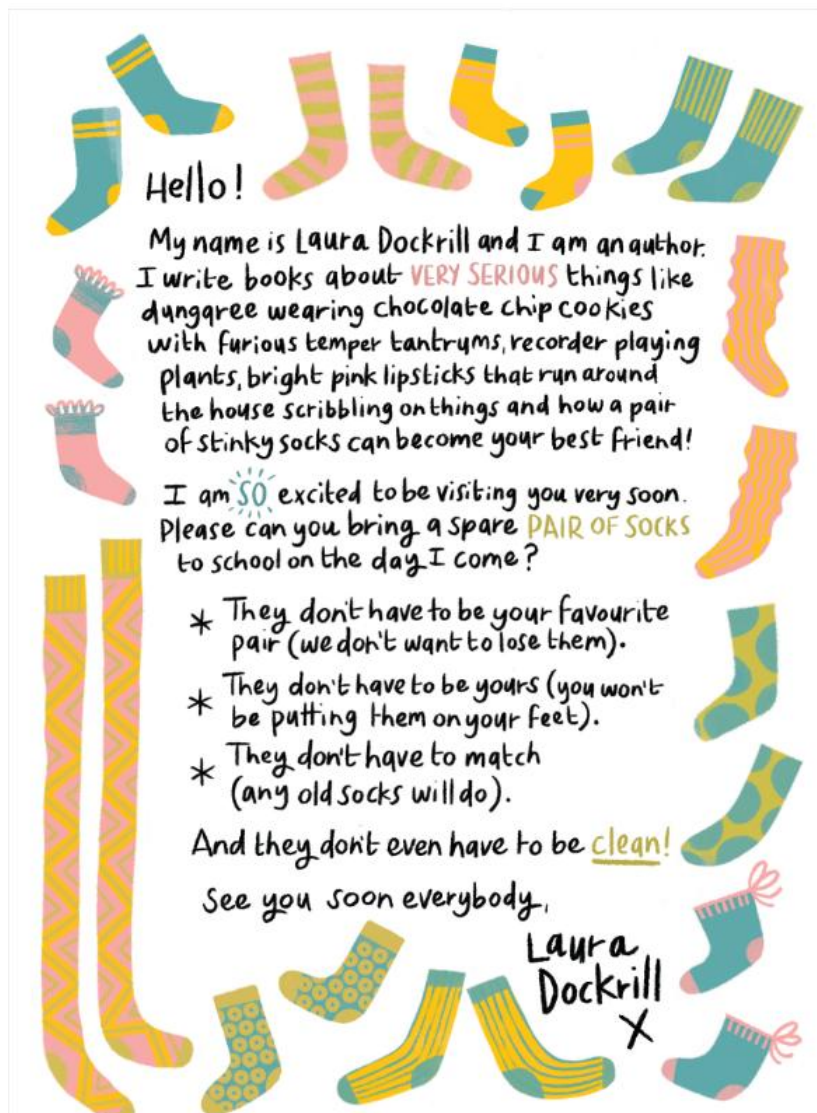 Hello!
My name is Laura Dockrill and I am an author.
I write books about VERY SERIOUS things like
dungaree wearing chocolate chip cookies
with furious temper tantrums, recorder playing
plants, bright pink lipsticks that run around
the house scribbling on things and how a pair
of stinky socks can become your best friend!
I am SO excited to be visiting you very soon.
Please can you bring a spare PAIR OF SOCKS
to school on the day I come?
* They don't have to be your favourite
pair (we don't want to lose them).
* They don't have to be yours (you won't
be putting them on your feet).
* They don't have to match
(any old socks will do).
And they don't even have to be clean!
See you soon everybody,
Laura
Dockrill
X